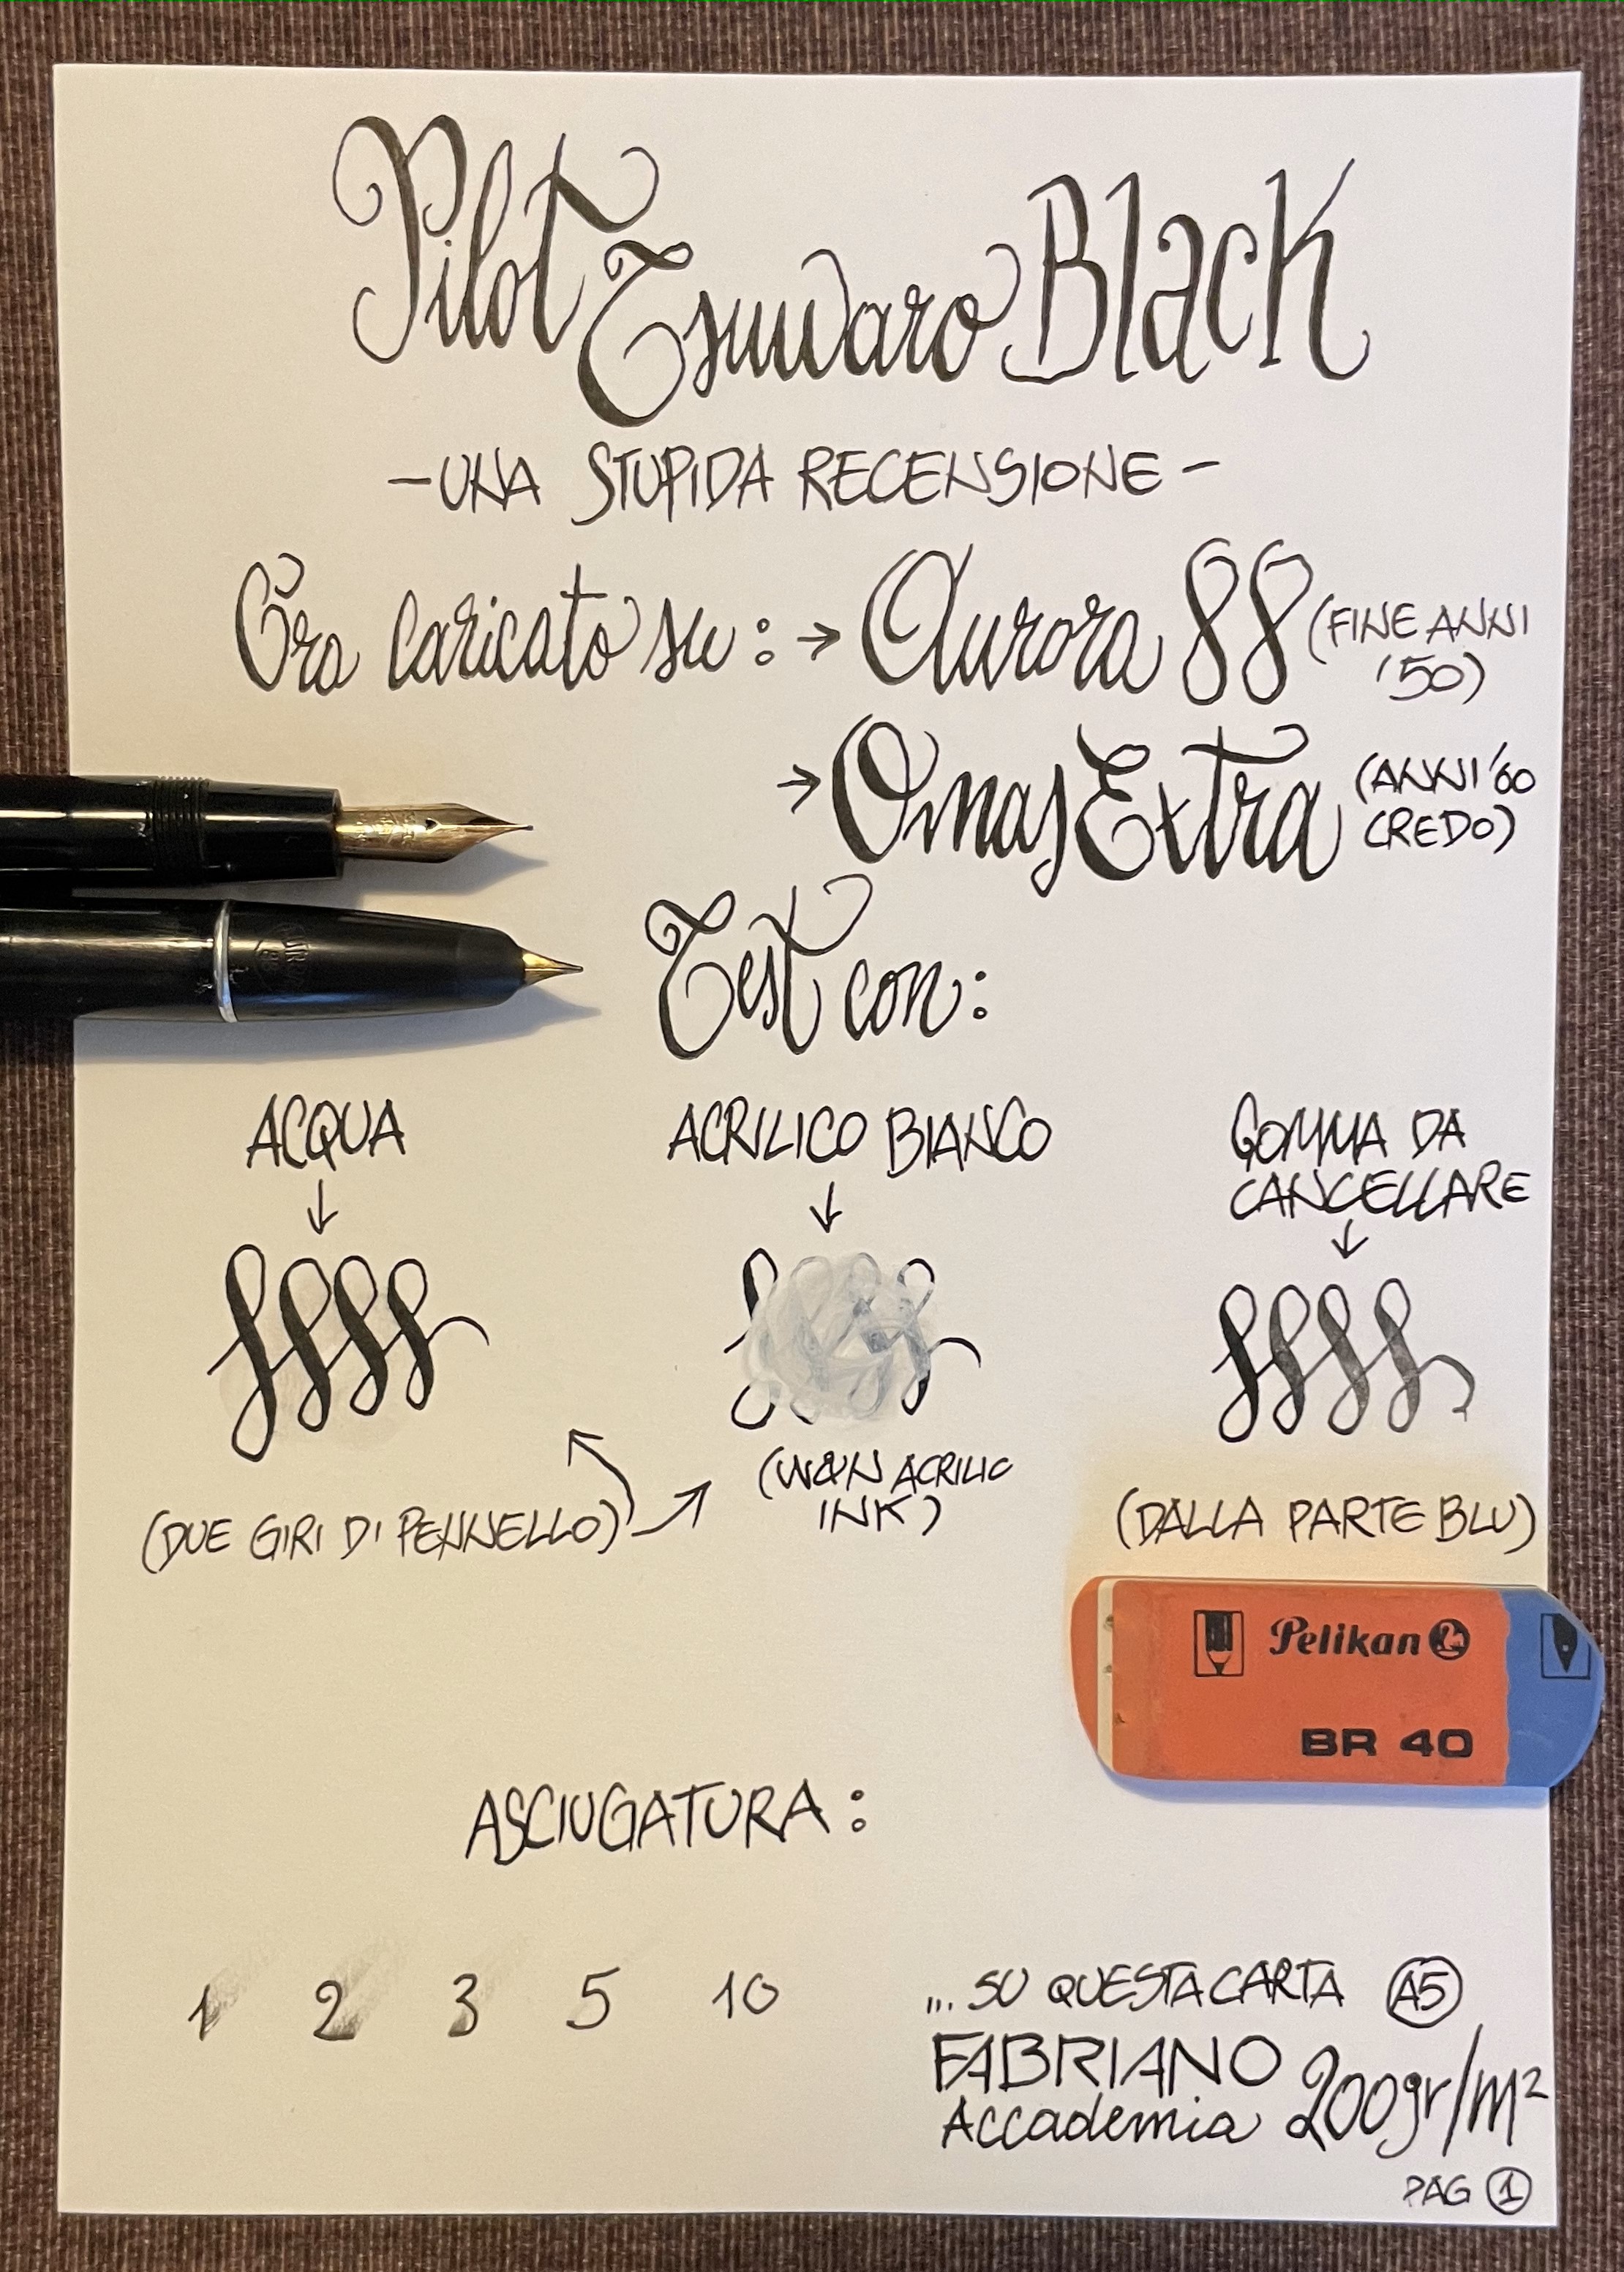 Pilot Tsuwaro Black
- UNA STUPIDA RECENSIONE -
Ora caricato su: → Aurora 88 (FINE ANNI
'50)
→ Omas Extra (ANNI '60
CREDO)
Test con:
ACQUA
↓
ACRILICO BIANCO
↓
GOMMA DA
CANCELLARE
↓
(DUE GIRI DI PENNELLO)
(W&N ACRILIC
INK)
(DALLA PARTE BLU)
Pelikan
BR 40
ASCIUGATURA:
1 2 3 5 10
... SU QUESTA CARTA A5
FABRIANO
Accademia 200gr/m²
PAG 1